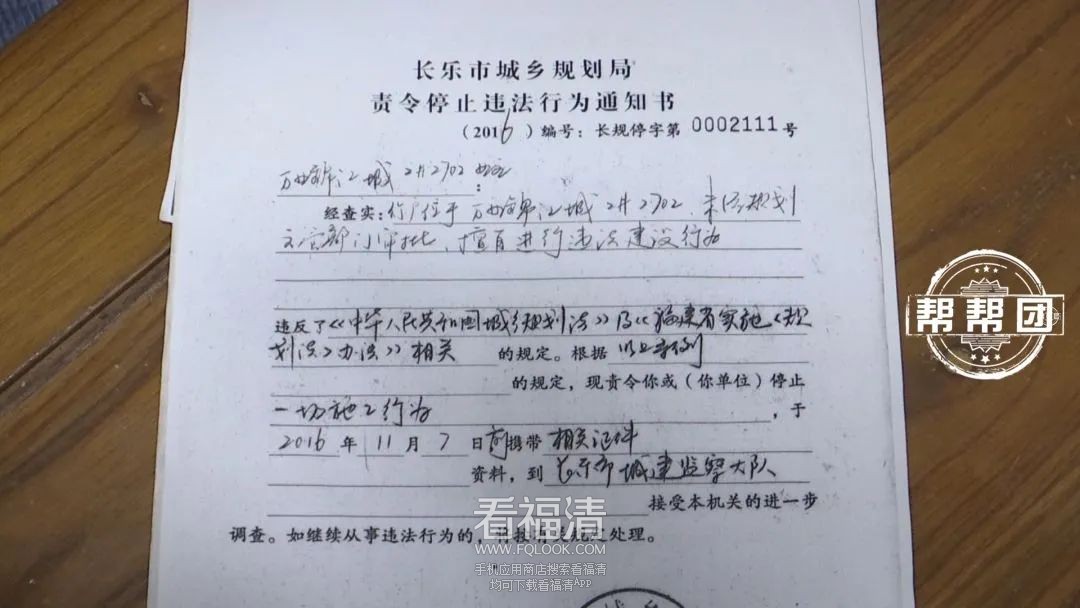 长乐市城乡规划局
责令停止违法行为通知书
(2016)编号：长规停字第0002111号
万世锦江城2#2702业主：
经查实：你户位于万世锦江城2#2702，未经规划
主管部门审批，擅自进行违法建设行为
违反了《中华人民共和国城乡规划法》及《福建省实施<规
划法>办法》相关的规定。根据以上条例
的规定，现责令你或(你单位)停止
一切施工行为，于
2016年11月7日前携带相关证件
资料，到长乐市城建监察大队
接受本机关的进一步
调查。如继续从事违法行为的，将按有关规定处理。
帮帮团
看福清
WWW.FQLOOK.COM
手机应用商店搜索看福清
均可下载看福清APP